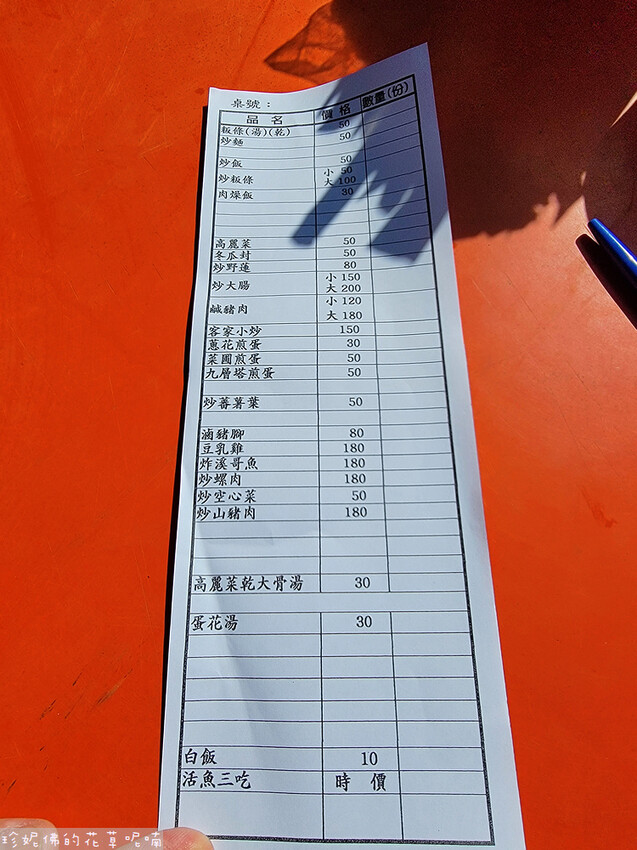 桌號：
品名 價格 數量(份)
粄條(湯)(乾) 50
炒麵 50
炒飯 50
炒粄條 小 50
大 100
肉燥飯 30
高麗菜 50
冬瓜封 50
炒野蓮 80
炒大腸 小 150
大 200
鹹豬肉 小 120
大 180
客家小炒 150
蔥花煎蛋 30
菜圃煎蛋 50
九層塔煎蛋 50
炒蕃薯葉 50
滷豬腳 80
豆乳雞 180
炸溪哥魚 180
炒螺肉 180
炒空心菜 50
炒山豬肉 180
高麗菜乾大骨湯 30
蛋花湯 30
白飯 10
活魚三吃 時價
珍妮佛的花草呢喃